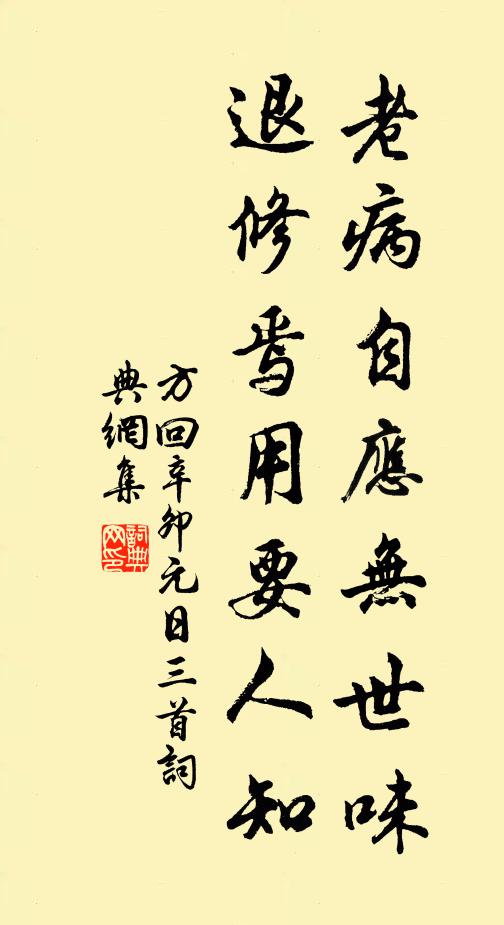 老病自應無世味
退修焉用要人知
方回辛卯元日三首詞
典網集
詞典
网印